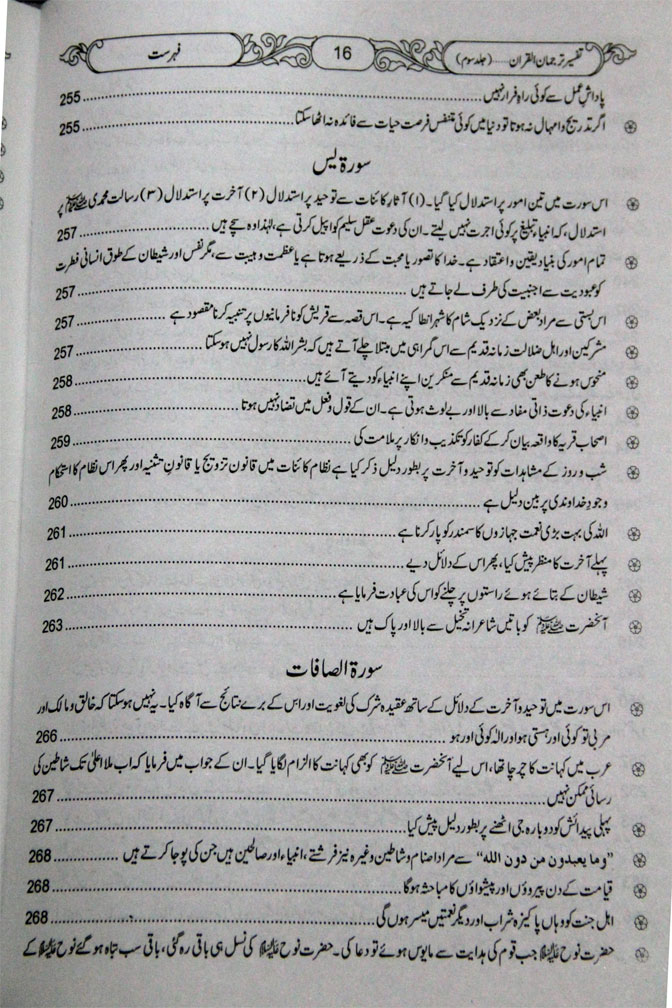 تفسیر ترجمان القرآن.....(جلد سوم) 16 فہرست
پاداش عمل سے کوئی راہ فرار نہیں ... 255
اگر تدریج و امہال نہ ہوتا تو دنیا میں کوئی متنفس فرصت حیات سے فائدہ نہ اٹھا سکتا ... 255
سورۃ یٰس
اس سورت میں تین امور پر استدلال کیا گیا۔ (۱) آثار کائنات سے توحید پر استدلال (۲) آخرت پر استدلال (۳) رسالت محمدی ﷺ پر
استدلال، کہ انبیاء تبلیغ پر کوئی اجرت نہیں لیتے۔ ان کی دعوت عقل سلیم کو اپیل کرتی ہے، لہٰذا وہ سچے ہیں ... 257
تمام امور کی بنیاد یقین و اعتقاد ہے۔ خدا کا تصور یا محبت کے ذریعے ہوتا ہے یا عظمت و ہیبت سے، مگر نفس اور شیطان کے طوق انسانی فطرت
کو عبودیت سے اجنبیت کی طرف لے جاتے ہیں ... 257
اس بستی سے مراد بعض کے نزدیک شام کا شہر انطاکیہ ہے۔ اس قصہ سے قریش کو نافرمانیوں پر تنبیہ کرنا مقصود ہے ... 257
مشرکین اور اہل ضلالت زمانہ قدیم سے اس گمراہی میں مبتلا چلے آتے ہیں کہ بشر اللہ کا رسول نہیں ہو سکتا ... 257
منحوس ہونے کا طعن بھی زمانہ قدیم سے منکرین اپنے انبیاء کو دیتے آئے ہیں ... 258
انبیاء کی دعوت ذاتی مفاد سے بالا اور بے لوث ہوتی ہے۔ ان کے قول و فعل میں تضاد نہیں ہوتا ... 258
اصحاب قریہ کا واقعہ بیان کر کے کفار کو تکذیب و انکار پر ملامت کی ... 259
شب و روز کے مشاہدات کو توحید و آخرت پر بطور دلیل ذکر کیا ہے نظام کائنات میں قانون تزویج یا قانون تثنیہ اور پھر اس نظام کا استحکام
وجود خداوندی پر بین دلیل ہے ... 260
اللہ کی بہت بڑی نعمت جہازوں کا سمندر کو پار کرنا ہے ... 261
پہلے آخرت کا منظر پیش کیا، پھر اس کے دلائل دیے ... 261
شیطان کے بتائے ہوئے راستوں پر چلنے کو اس کی عبادت فرمایا ہے ... 262
آنحضرت ﷺ کو باتیں شاعرانہ تخیل سے بالا اور پاک ہیں ... 263
سورۃ الصافات
اس سورت میں توحید و آخرت کے دلائل کے ساتھ عقیدہ شرک کی لغویت اور اس کے برے نتائج سے آگاہ کیا۔ یہ نہیں ہو سکتا کہ خالق و مالک اور
مربی تو کوئی اور ہستی ہو اور الٰہ کوئی اور ہو ... 266
عرب میں کہانت کا چرچا تھا، اس لیے آنحضرت ﷺ کو بھی کہانت کا الزام لگایا گیا۔ ان کے جواب میں فرمایا کہ اب ملا اعلیٰ تک شاطین کی
رسائی ممکن نہیں ... 267
پہلی پیدائش کو دوبارہ جی اٹھنے پر بطور دلیل پیش کیا ... 267
”وما یعبدون من دون اللہ“ سے مراد اصنام و شاطین وغیرہ نیز فرشتے، انبیاء اور صالحین ہیں جن کی پوجا کرتے ہیں ... 268
قیامت کے دن پیروؤں اور پیشواؤں کا مباحثہ ہوگا ... 268
اہل جنت کو وہاں پاکیزہ شراب اور دیگر نعمتیں میسر ہوں گی ... 268
حضرت نوح علیہ السلام جب قوم کی ہدایت سے مایوس ہوئے تو دعا کی۔ حضرت نوح علیہ السلام کی نسل ہی باقی رہ گئی، باقی سب تباہ ہو گئے نوح علیہ السلام کے